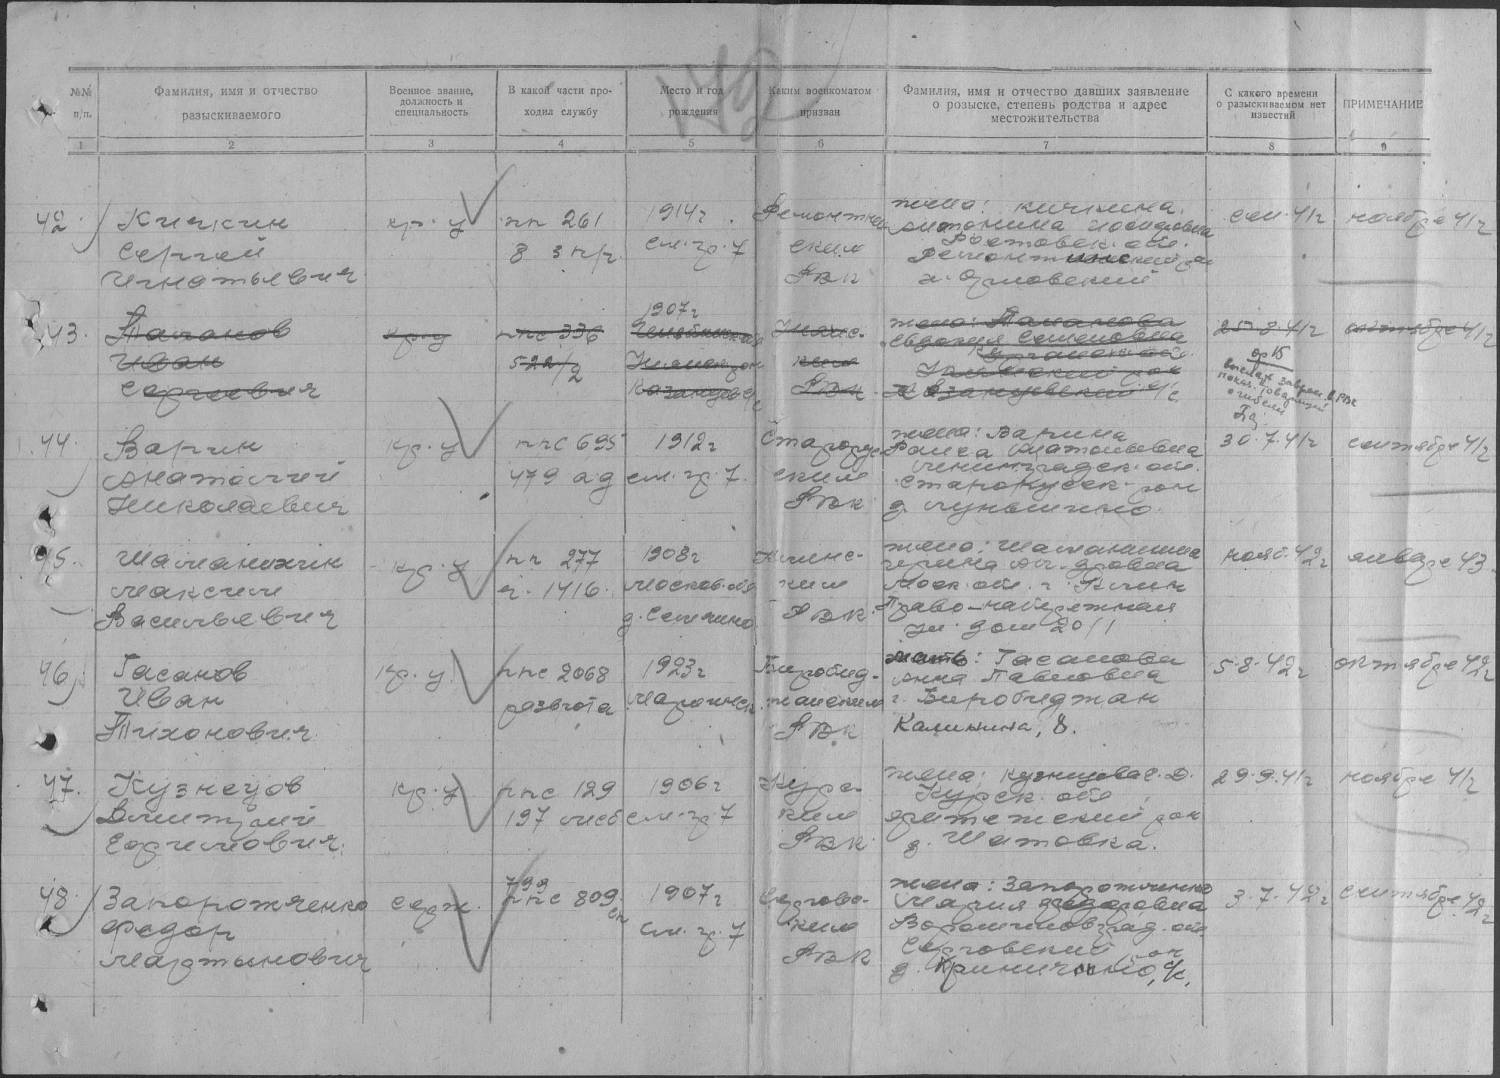 142
№№ п/п.
Фамилия, имя и отчество
разыскиваемого
Военное звание,
должность и
специальность
В какой части про-
ходил службу
Место и год
рождения
Каким военкоматом
призван
Фамилия, имя и отчество давших заявление
о розыске, степень родства и адрес
местожительства
С какого времени
о разыскиваемом нет
известий
ПРИМЕЧАНИЕ
1 2 3 4 5 6 7 8 9
42.
Кичкин
Сергей
Игнатьевич
кр-ц
пп 261
8 зпр
1914 г.
см. гр. 7
Ремонтнен-
ским
РВК
жена: Кичкина
Антонина
Ростовск. обл.
Ремонтненский р-н
х. Орловский
сен. 41 г
ноябре 41 г
43.
Таланов
Иван
Сергеевич
кр-ц
ппс 336
522/2
1907 г
Челябинская
Казанцевск
ским
РВК
жена: Таланова
Евдокия Семеновна
Курганск. обл.
Казанцевский с/с
25-8-41 г
сентябре 41 г
44
Варин
Анатолий
Николаевич
кр-ц
ппс 695
479 ап
1912 г
см. гр. 7.
Старорус-
ским
РВК
жена: Варина
Раиса Матвеевна
Ленинградск. обл.
Старорусск. рон
д. Луньшино
30.7.41 г
сентябре 41 г
45.
Шаманихин
Максим
Васильевич
кр-ц
пп 277
ч. 1416
1908 г
Москов. обл
д. Семчино
Клинс-
ким
РВК
жена: Шаманихина
Ирина Ал-дровна
Моск. обл. г. Клин
Право-набережная
ул. дом 20/1
нояб. 42 г
январе 43.
46
Гасанов
Иван
Тихонович
кр-ц
ппс 2068
развгота
1923 г
Мариинск
Биробид-
жанским
РВК
мать: Гасанова
Анна Павловна
г. Биробиджан
Калинина, 8.
5-8-42 г
октябре 42 г
47.
Кузнецов
Дмитрий
Ефимович
кр-ц
ппс 129
197 мсб
1906 г
см. гр. 7
Курс-
ким
РВК
жена: Кузнецова Е. Д.
Курск. обл
Фатежский рон
д. Шатовка.
29.9.41 г
ноябре 41 г
48
Запорожченко
Федор
Мартынович
серж.
799
ппс 809
сп
1907 г
см. гр. 7
Серговс-
ким
РВК
жена: Запорожченко
Мария Федоровна
Ворошиловград. обл
Серговский рон
д. Криничано, с/с,
3.7.42 г
сентябре 42 г